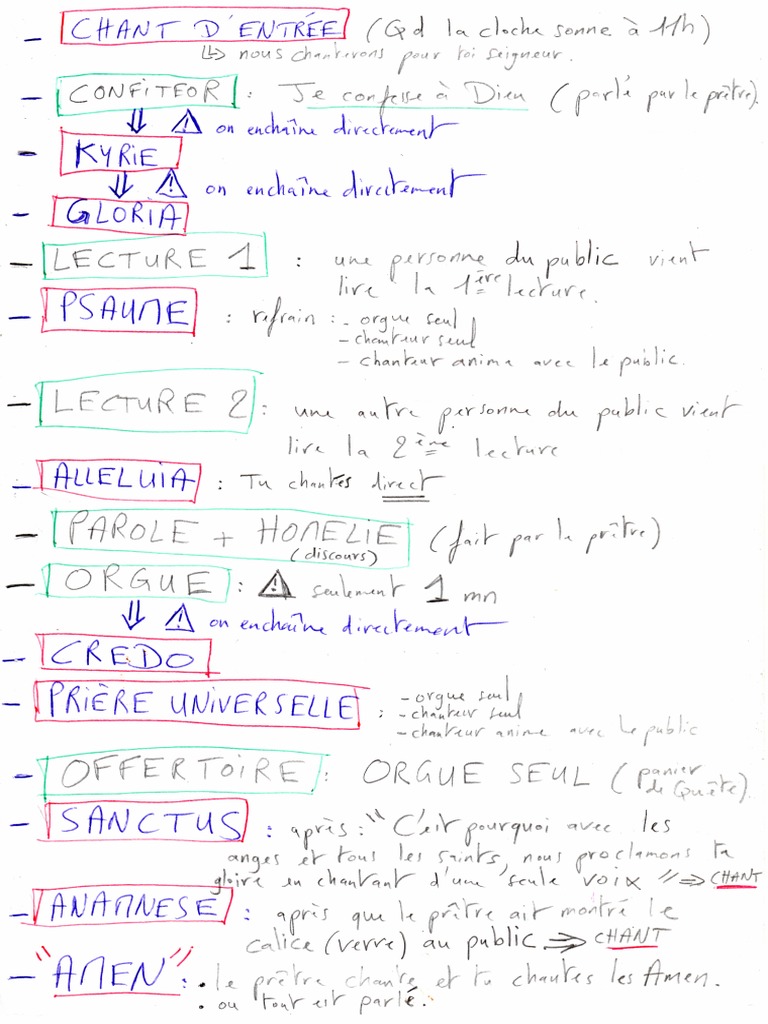 - CHANT D'ENTRÉE (Qd la cloche sonne à 11h)
↳ nous chanterons pour toi seigneur.
- CONFITEOR : Je confesse à Dieu (parlé par le prêtre).
⇓ ⚠ on enchaîne directement
- KYRIE
⇓ ⚠ on enchaîne directement
- GLORIA
- LECTURE 1 : une personne du public vient
lire la 1ère lecture.
- PSAUME : refrain : - orgue seul
- chanteur seul
- chanteur anima avec le public.
- LECTURE 2 : une autre personne du public vient
lire la 2ème lecture
- ALLELUIA : Tu chantes direct
- PAROLE + HOMELIE (fait par le prêtre)
(discours)
- ORGUE : ⚠ seulement 1 mn
⇓ ⚠ on enchaîne directement
- CREDO
- PRIÈRE UNIVERSELLE : - orgue seul
- chanteur seul
- chanteur anime avec le public
- OFFERTOIRE : ORGUE SEUL (panier
de Quête).
- SANCTUS : après : "C'est pourquoi avec les
anges et tous les saints, nous proclamons ta
gloire en chantant d'une seule voix" ⇒ CHANT
- ANAMNESE : après que le prêtre ait montré le
calice (verre) au public ⇒ CHANT
- "AMEN" : • le prêtre chante et tu chantes les Amen.
• ou tout est parlé.